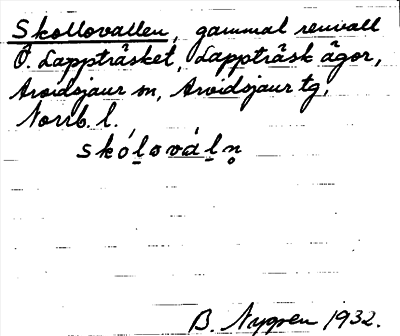 Skollovallen, gammal renvall
Ö. Lappträsket, Lappträsk ägor,
Arvidsjaur sn, Arvidsjaur tg,
Norrb. l.
skól̲ovál̲n̥
B. Nygren 1932.